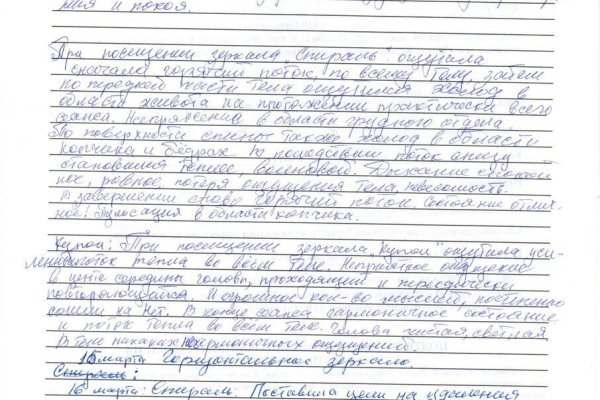 ния и покоя.
При посещении зеркала "Спираль" ощутила
сначала горячий поток, по всему телу, затем
по передней части тела ощущался холод в
области живота на протяжении практически всего
сеанса. Напряжение в области грудного отдела.
По поверхности спины также холод в области
копчика и бедрах. В последствии поток снизу
становился теплее, волновой. Дыхание спокой
ное, ровное, потеря ощущения тела, невесомость.
В завершении снова горячий поток. Состояние отлич-
ное. Пульсация в области копчика.
Купол: При посещении зеркала "Купол" ощутила уси-
ление поток тепла во всём теле. Неприятное ощущение
в центе середины головы, проходящий и периодически
повторяющийся. И огромное кол-во мыслей, постепенно
сошли на нет. В конце сеанса гармоничное состояние
и поток тепла во всем теле. Голова чистая, светлая,
В теле никаких негармоничных ощущений.
15 марта Горизонтальное зеркало.
Спираль:
16 марта: Спираль. Поставила цели на